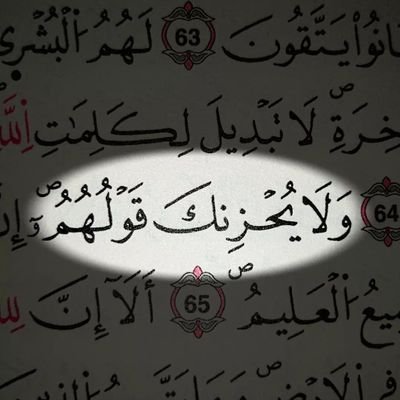 ـانُواْ يَتَّقُونَ 63 لَهُمُ اُلْبُشْرۭى
خِرَةِ لَا تَبْدِيلَ لِكَلِمَٰتِ اِللَّهِ
64 وَلَا يُحْزِنكَ قَوْلُهُمُۥٓ إِنَّ
ـيعُ اُلْعَلِيمُ 65 أَلَآ إِنَّ لِلهِ